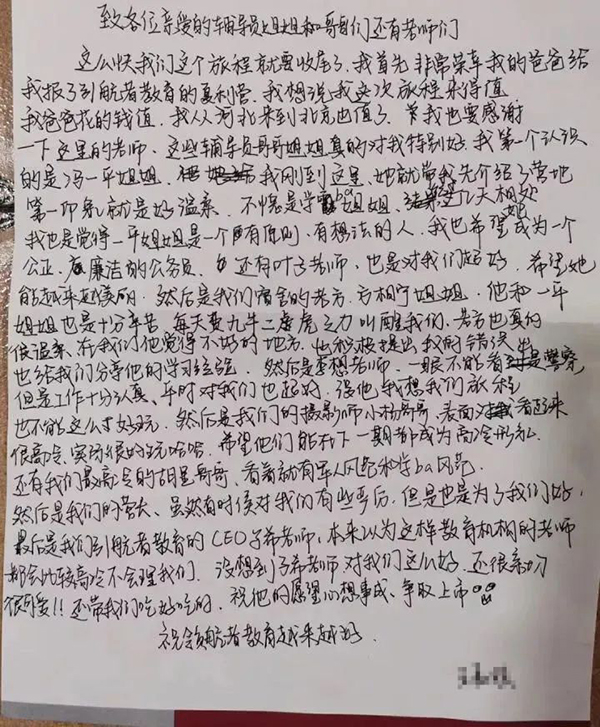 致各位亲爱的辅导员姐姐和哥哥们还有老师们
这么快我们这个旅程就要收尾了,我首先非常荣幸我的爸爸给
我报了引航者教育的夏利营。我想说我这次旅程来得值
我爸爸花的钱值。我从河北来到北京也值了 我也要感谢
一下这里的老师、这些辅导员哥哥姐姐真的对我特别好。我第一个认识
的是冯一平姐姐 我刚到这里、她就带我先介绍了营地
第一印象就是好温柔、不愧是学 姐姐、 几天相处
我也是觉得一平姐姐是一个 有原则、有想法的人、我也希望 成为一个
公正、廉洁的公务员、还有叶子老师、也是对我们好好、希望她
能越来越美的、然后是我们宿舍的老方、方相宁姐姐、他和一平
姐姐也是十分辛苦 每天费九牛二虎之力叫醒我们、老方也真的
很温柔、在我们他觉得不好的地方、也积极提出我的错误
也给我们分享他的学习经验、然后是李想老师、一眼不能看 是警察
但是工作十分认真、平时对我们也挺好、没他我想我们旅程
也不能这么好玩、然后是我们的摄影师小杨哥哥、表面 看起来
很高冷、实际很好玩哈哈、希望他们能和下一期都成为
还有我们最高冷的胡星哥哥、看着就有军人风范和学ba风范
然后是我们的营长、虽然有时侯对我们有些严厉、但是也是为了我们好、
最后是我们引航者教育的CEO子希老师、本来以为这样教育机构的老师
都会比较高冷不会理我们、没想到子希老师对我们这么好、还很亲切
很可爱!!还带我们吃好吃的、祝他的愿望心想事成、争取上市
祝领航者教育越来越好.